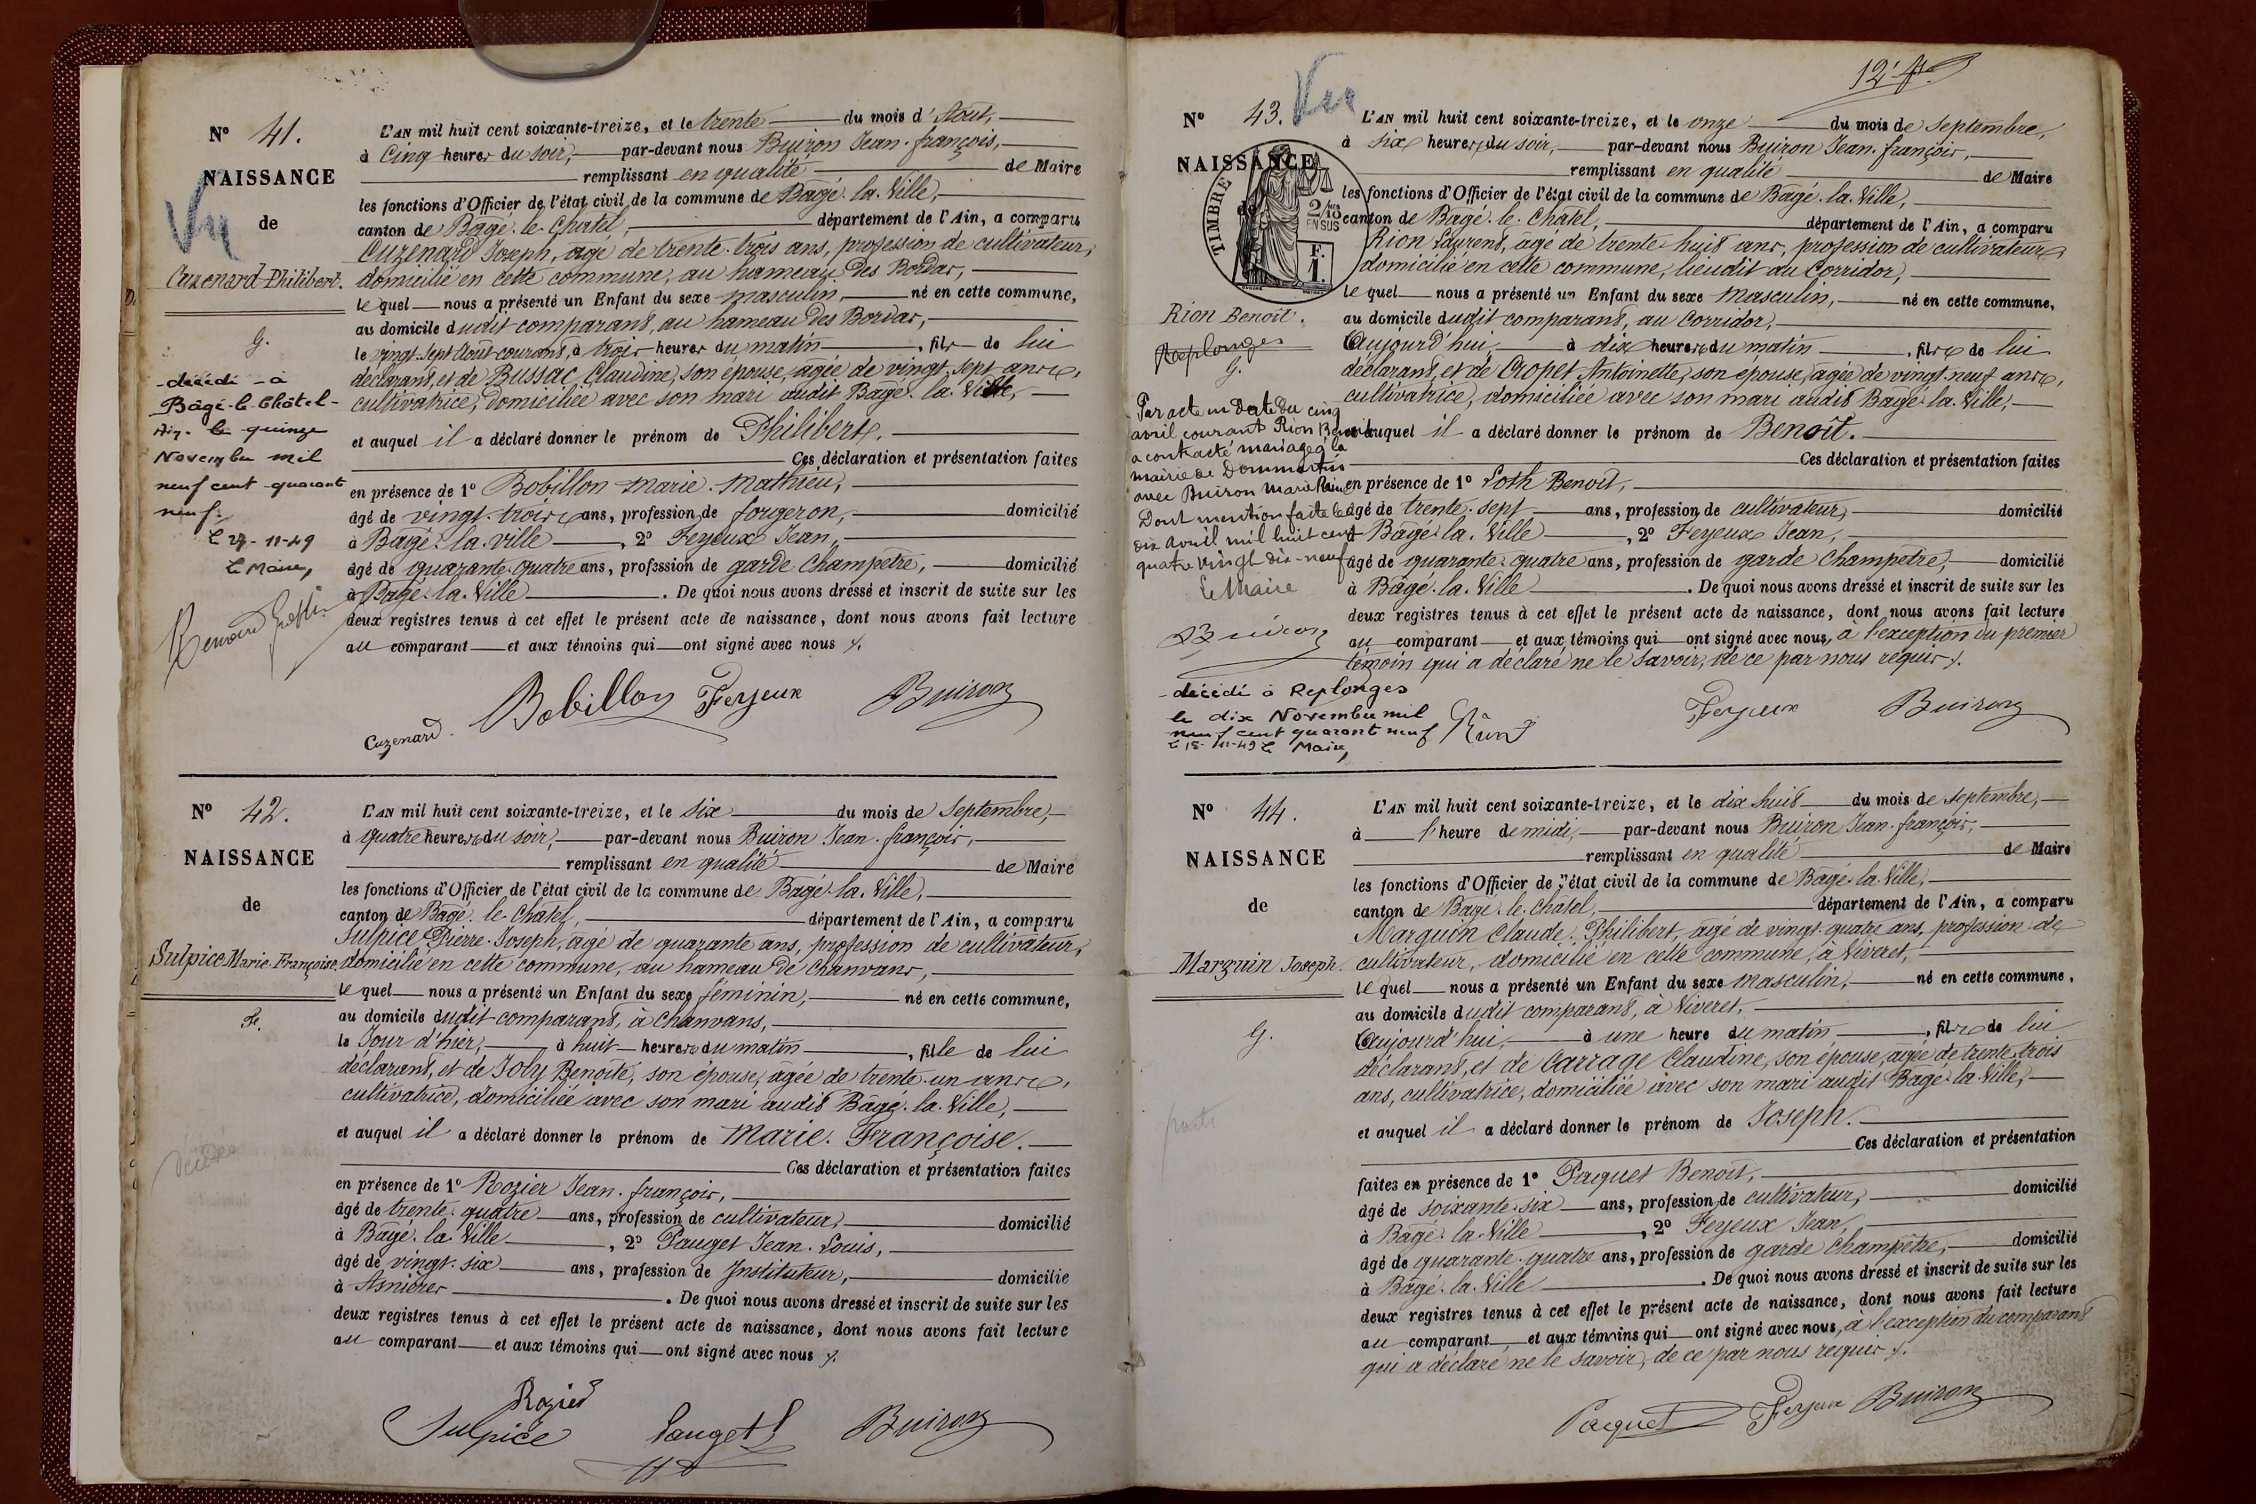 N° 41.
NAISSANCE
de
Vu
Cuzenard Philibert.
G.
décédé à
Bâgé-le-Châtel
Ain. le quinze
Novembre mil
neuf cent quarant
neuf.
Le 27-11-49
Le Maire,
L'AN mil huit cent soixante-treize, et le trente du mois d'Août,
à cinq heures du soir, par-devant nous Buiron Jean-françois,
remplissant en qualité de Maire
les fonctions d'Officier de l'état civil de la commune de Bâgé-la-Ville,
canton de Bâgé-le-Châtel, département de l'Ain, a comparu
Cuzenard Joseph, âgé de trente-trois ans, profession de cultivateur,
domicilié en cette commune, au hameau des Bordas,
lequel nous a présenté un Enfant du sexe masculin, né en cette commune,
au domicile dudit comparant, au hameau des Bordas,
le vingt-sept Août courant, à trois heures du matin, fils de lui
déclarant, et de Bussac Claudine, son épouse, âgée de vingt-sept ans,
cultivatrice, domiciliée avec son mari audit Bâgé-la-Ville,
et auquel il a déclaré donner le prénom de Philibert.
Ces déclaration et présentation faites
en présence de 1° Bobillon Marie-Mathieu,
âgé de vingt-trois ans, profession de forgeron, domicilié
à Bâgé-la-ville, 2° Feyeux Jean,
âgé de quarante-quatre ans, profession de garde-champêtre, domicilié
à Bâgé-la-Ville. De quoi nous avons dressé et inscrit de suite sur les
deux registres tenus à cet effet le présent acte de naissance, dont nous avons fait lecture
au comparant et aux témoins qui ont signé avec nous.
Cuzenard. Bobillon Feyeux Buiron
N° 42.
NAISSANCE
de
Sulpice Marie-Françoise.
F.
décédée
L'AN mil huit cent soixante-treize, et le six du mois de Septembre,
à quatre heures du soir, par-devant nous Buiron Jean-françois,
remplissant en qualité de Maire
les fonctions d'Officier de l'état civil de la commune de Bâgé-la-Ville,
canton de Bâgé-le-Châtel, département de l'Ain, a comparu
Sulpice Pierre-Joseph, âgé de quarante ans, profession de cultivateur,
domicilié en cette commune, au hameau de Chanvans,
lequel nous a présenté un Enfant du sexe féminin, né en cette commune,
au domicile dudit comparant, à Chanvans,
le Jour d'hier, à huit heures du matin, fille de lui
déclarant, et de Joly Benoite, son épouse, âgée de trente-un ans,
cultivatrice, domiciliée avec son mari audit Bâgé-la-Ville,
et auquel il a déclaré donner le prénom de Marie-Françoise.
Ces déclaration et présentation faites
en présence de 1° Rozier Jean-françois,
âgé de trente-quatre ans, profession de cultivateur, domicilié
à Bâgé-la-Ville, 2° Pauget Jean-Louis,
âgé de vingt-six ans, profession de Instituteur, domicilié
à Asnières. De quoi nous avons dressé et inscrit de suite sur les
deux registres tenus à cet effet le présent acte de naissance, dont nous avons fait lecture
au comparant et aux témoins qui ont signé avec nous.
Rozier
Sulpice Pauget Buiron
12
N° 43.
Vu
NAISSANCE
de
TIMBRE
2/10 EN SUS
F. 1.
Rion Benoit.
Replonges
G.
Par acte en date du cinq
avril courant Rion Benoit
a contracté mariage à la
mairie de Dommartin
avec Buiron Marie
Dont mention faite le
dix avril mil huit cent
quatre vingt dix-neuf
Le Maire
Buiron
décédé à Replonges
le dix Novembre mil
neuf cent quarant neuf
Le 15-11-49 Le Maire,
L'AN mil huit cent soixante-treize, et le onze du mois de Septembre,
à six heures du soir, par-devant nous Buiron Jean-françois,
remplissant en qualité de Maire
les fonctions d'Officier de l'état civil de la commune de Bâgé-la-Ville,
canton de Bâgé-le-Châtel, département de l'Ain, a comparu
Rion Laurent, âgé de trente-huit ans, profession de cultivateur
domicilié en cette commune, lieudit au Corridor,
lequel nous a présenté un Enfant du sexe masculin, né en cette commune,
au domicile dudit comparant, au Corridor,
Aujourd'hui, à dix heures du matin, fils de lui
déclarant, et de Cropet Antoinette, son épouse, âgée de vingt-neuf ans,
cultivatrice, domiciliée avec son mari audit Bâgé-la-Ville,
et auquel il a déclaré donner le prénom de Benoît.
Ces déclaration et présentation faites
en présence de 1° Loth Benoit,
âgé de trente-sept ans, profession de cultivateur, domicilié
à Bâgé-la-Ville, 2° Feyeux Jean,
âgé de quarante-quatre ans, profession de garde champêtre, domicilié
à Bâgé-la-Ville. De quoi nous avons dressé et inscrit de suite sur les
deux registres tenus à cet effet le présent acte de naissance, dont nous avons fait lecture
au comparant et aux témoins qui ont signé avec nous, à l'exception du premier
témoin qui a déclaré ne le savoir, de ce par nous requis.
Feyeux Buiron
N° 44.
NAISSANCE
de
Marguin Joseph.
G.
L'AN mil huit cent soixante-treize, et le dix huit du mois de septembre,
à l'heure de midi, par-devant nous Buiron Jean-françois,
remplissant en qualité de Maire
les fonctions d'Officier de l'état civil de la commune de Bâgé-la-Ville,
canton de Bâgé-le-Châtel, département de l'Ain, a comparu
Marguin Claude-Philibert, âgé de vingt-quatre ans, profession de
cultivateur, domicilié en cette commune, à Viveret,
lequel nous a présenté un Enfant du sexe masculin, né en cette commune,
au domicile dudit comparant, à Viveret,
Aujourd'hui, à une heure du matin, fils de lui
déclarant, et de Carrage Claudine, son épouse, âgée de trente-trois
ans, cultivatrice, domiciliée avec son mari audit Bâgé-la-Ville,
et auquel il a déclaré donner le prénom de Joseph.
Ces déclaration et présentation
faites en présence de 1° Paquet Benoît,
âgé de soixante-six ans, profession de cultivateur, domicilié
à Bâgé-la-Ville, 2° Feyeux Jean,
âgé de quarante-quatre ans, profession de garde champêtre, domicilié
à Bâgé-la-Ville. De quoi nous avons dressé et inscrit de suite sur les
deux registres tenus à cet effet le présent acte de naissance, dont nous avons fait lecture
au comparant et aux témoins qui ont signé avec nous, à l'exception du comparant
qui a déclaré ne le savoir, de ce par nous requis.
Paquet Feyeux Buiron